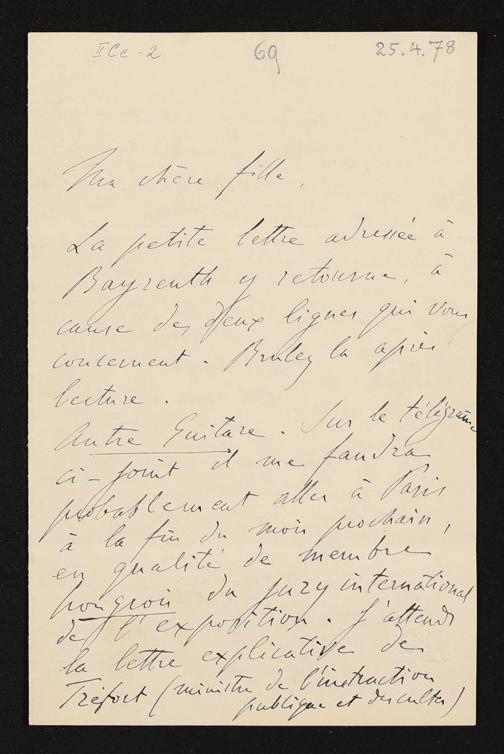 II Cc-2 69 25.4.78
Ma chère fille,
La petite lettre adressée à
Bayreuth y retourne, à
cause des deux lignes qui vous
concernent. Brulez la après
lecture.
Autre Guitare. Sur le télégramme
ci-joint il me faudra
probablement aller à Paris
à la fin du mois prochain,
en qualité de membre
hongrois du jury international
de l'exposition. J'attends
la lettre explicative de
Tréfort (ministre de l'instruction
publique et des cultes)